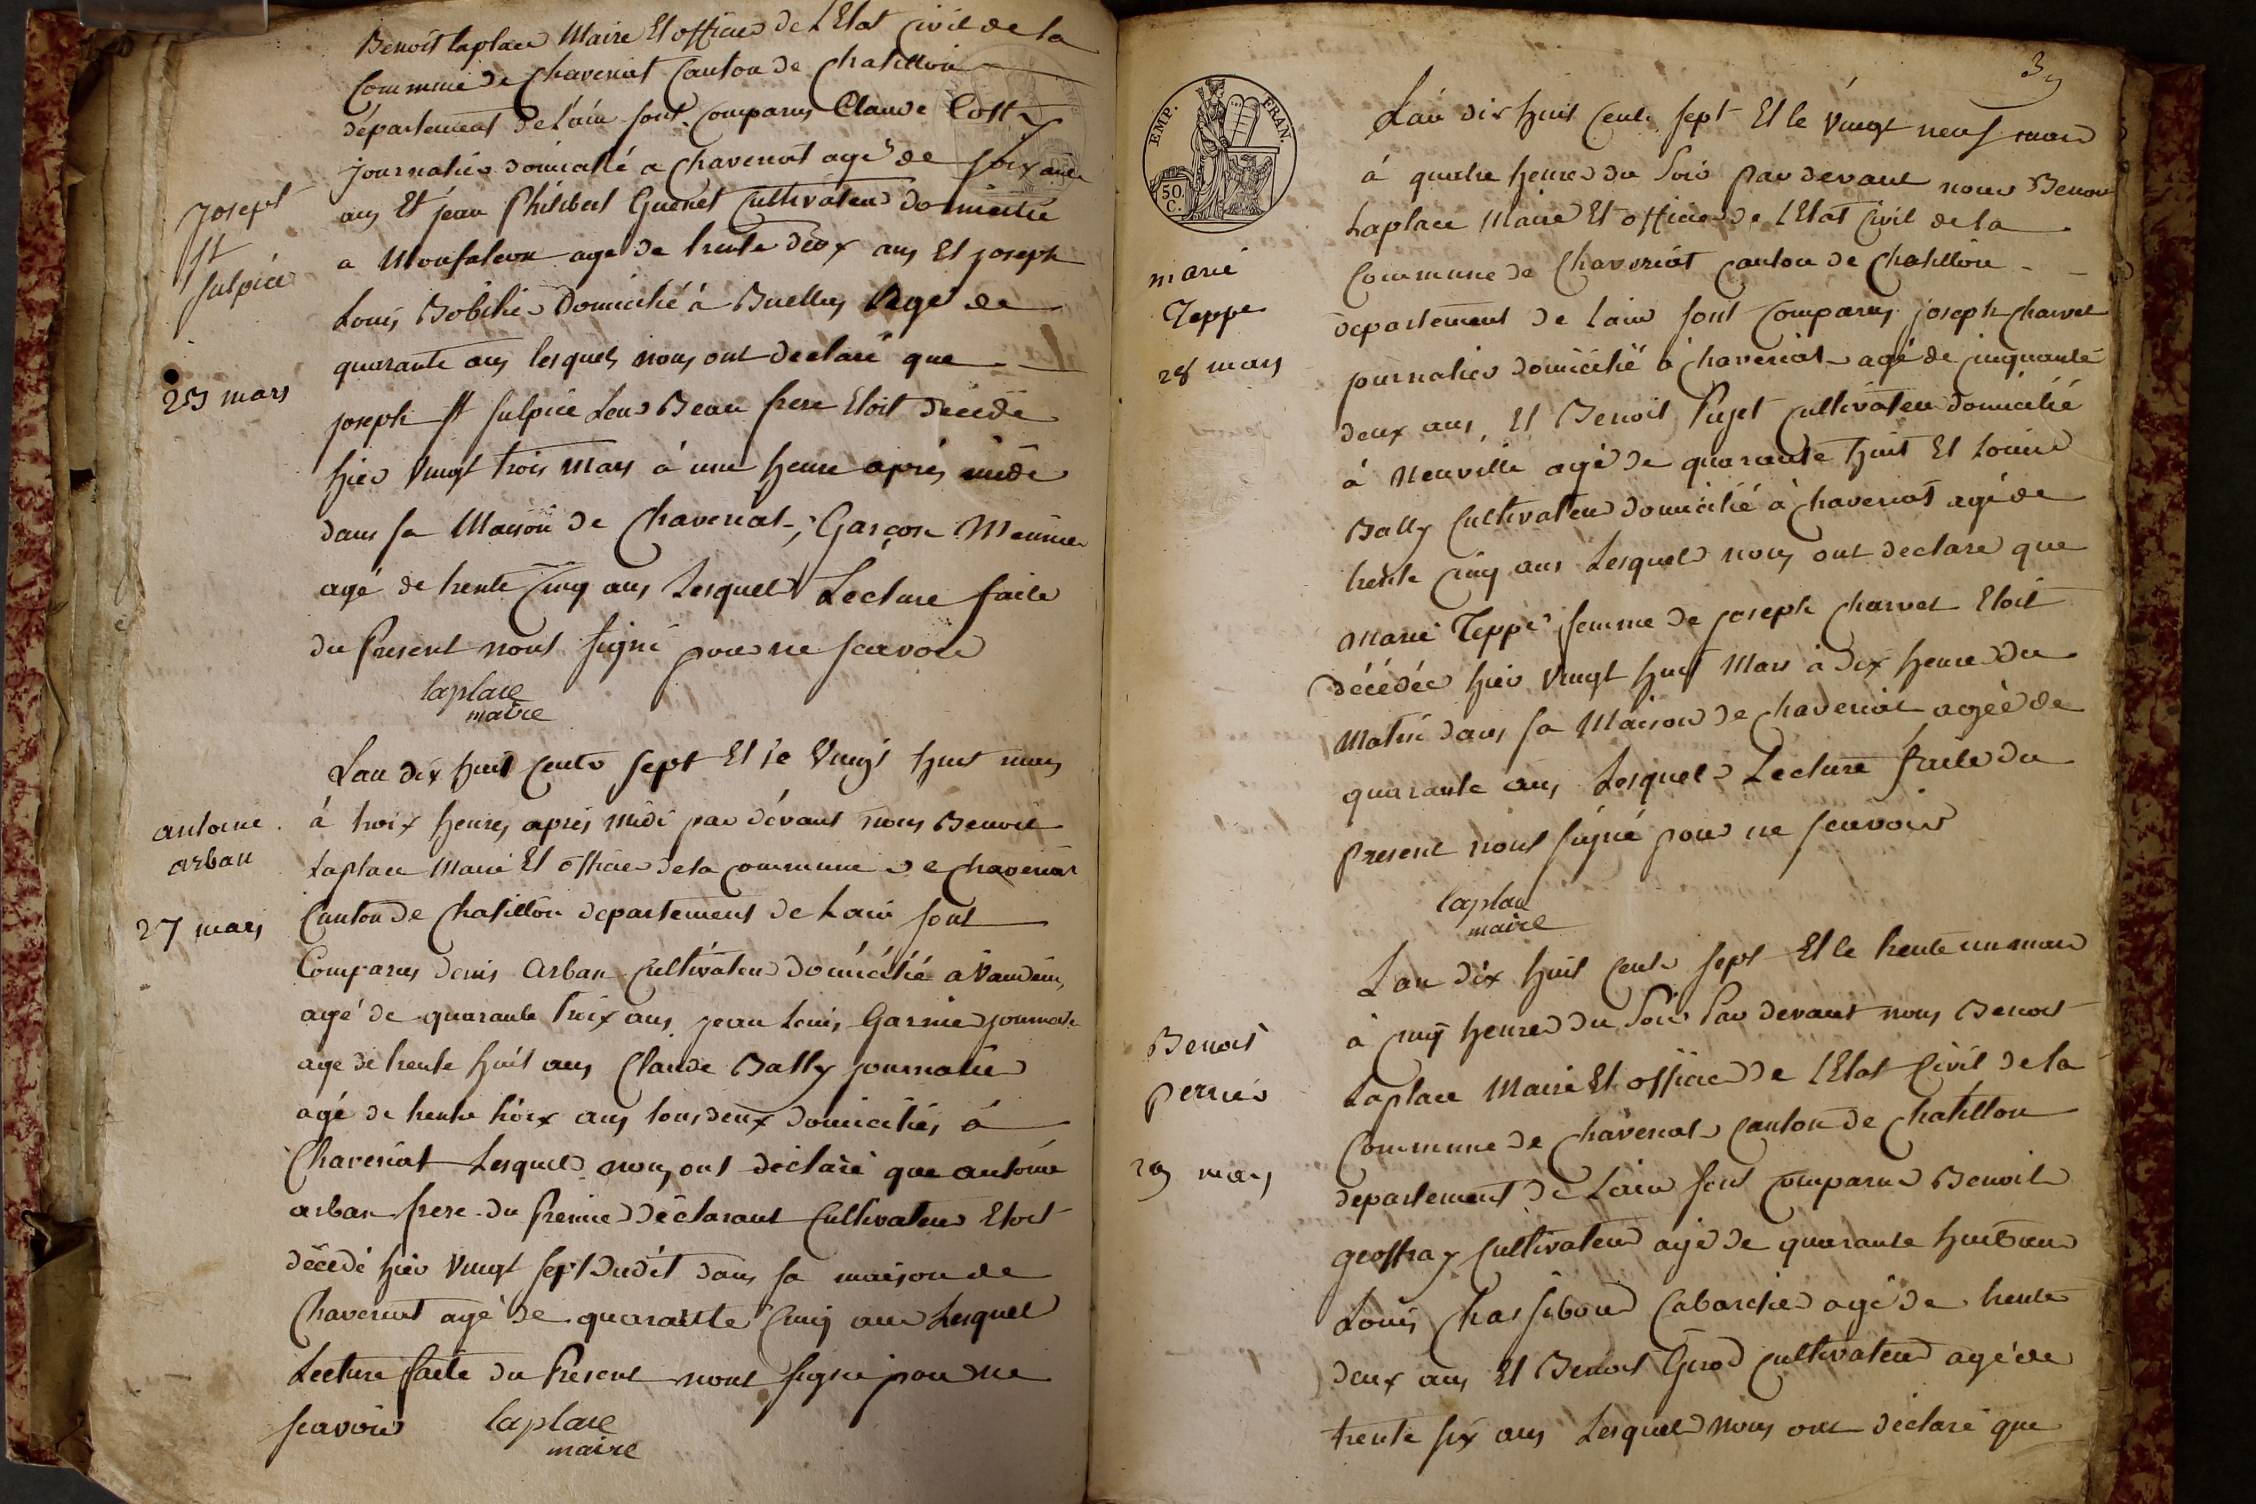 Benoit laplace Maire Et officier de L'Etat Civil de la
Commune de Chaveriat Canton de Chatillon
département de L'ain sont Comparus Claude Cott
journalier domicilié a Chaveriat agé de soixante
ans Et jean Philibert Guenet Cultivateur domicilié
a Monfalcon agé de trente deux ans Et joseph
Louis Bobilier Domicilié à Buellas Agé de
quarante ans lesquels nous ont declaré que
joseph st sulpice Leur Beau frere Etoit décédé
hier vingt trois mars à une heure après midi
dans sa Maison de Chaveriat, Garçon Meunier
agé de trente Cinq ans Lesquels Lecture faite
du Present n'ont signé pour ne scavoir
laplace
maire
Joseph
st
sulpice
23 mars
Lan dix huit Cents sept Et le vingt huit mars
à troix heures aprés midi par dévant nous Benoit
Laplace Maire Et officier de la Commune de Chaveriat
Canton de Chatillon departement de Lain sont
Comparus denis Arban Cultivateur domicilié à Vandeins
agé de quarante troix ans jean Louis Garnier journalier
age de trente huit ans Claude Bally journalier
agé de trente troix ans tous deux domiciliés à
Chaveriat Lesquels nous ont déclaré que antoine
arban frere du Premier déclarant Cultivateur Etoit
décédé hier vingt sept dudit dans sa maison de
Chaveriat agé de quarante Cinq ans Lesquel
Lecture faite du Present n'ont signé pour ne
scavoir
laplace
maire
antoine
arban
27 mars
39
EMP. FRAN.
50 C.
Lan dix huit Cents sept Et le vingt neuf mars
à quatre heures du soir par devant nous Benoit
Laplace Maire Et officier de L'Etat Civil de la
Commune de Chaveriat Canton de Chatillon
département de Lain sont Comparus joseph Charvet
journalier domicilié à Chaveriat agé de cinquante
deux ans, Et Benoit Pujet Cultivateur domicilié
à Neuville agé de quarante huit Et Louis
Bally Cultivateur domicilié à Chaveriat agé de
trente Cinq ans Lesquel nous ont declaré que
Marie Teppe femme de joseph Charvet Etoit
décédée hier vingt huit Mars à dix heure du
Matin dans sa Maison de Chaveriat agée de
quarante ans, Lesquels Lecture faite du
present n'ont signé pour ne scavoir
laplace
maire
marie
Teppe
28 mars
Lan dix huit Cents sept Et le trente un mars
à cinq heures du soir Par devant nous Benoit
Laplace Maire Et officier de L'Etat Civil de la
Commune de Chaveriat Canton de Chatillon
departement de Lain sont Comparus Benoit
geoffray Cultivateur agé de quarante huit ans
Louis Chassibout Cabaretier agé de trente
deux ans Et Benoit Girod Cultivateur agé de
trente six ans Lesquel nous ont déclaré que
Benoit
perrier
29 mars